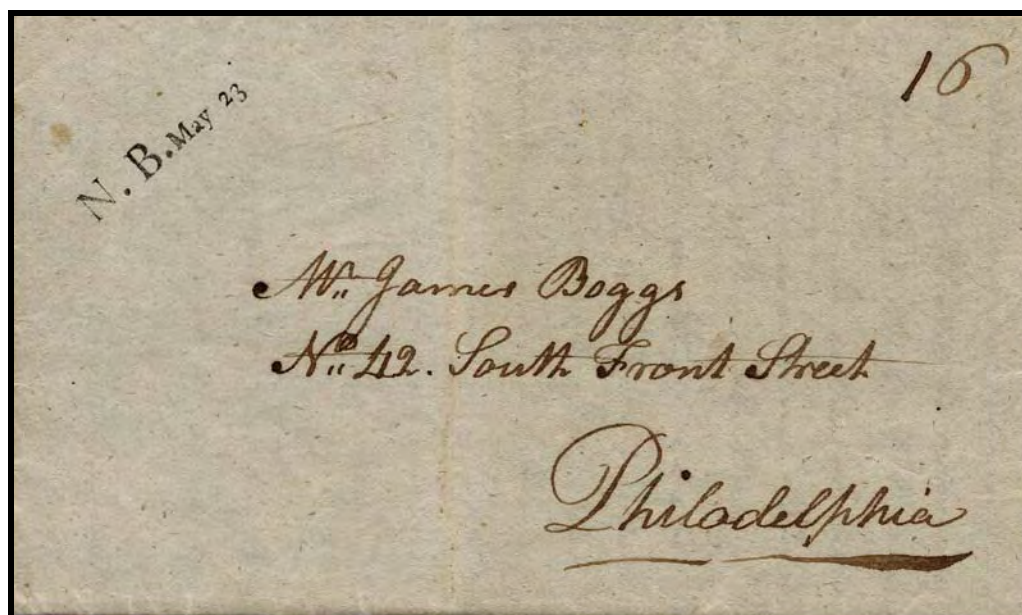 16
N. B. May 23
Mr. James Boggs
No. 42. South Front Street
Philadelphia